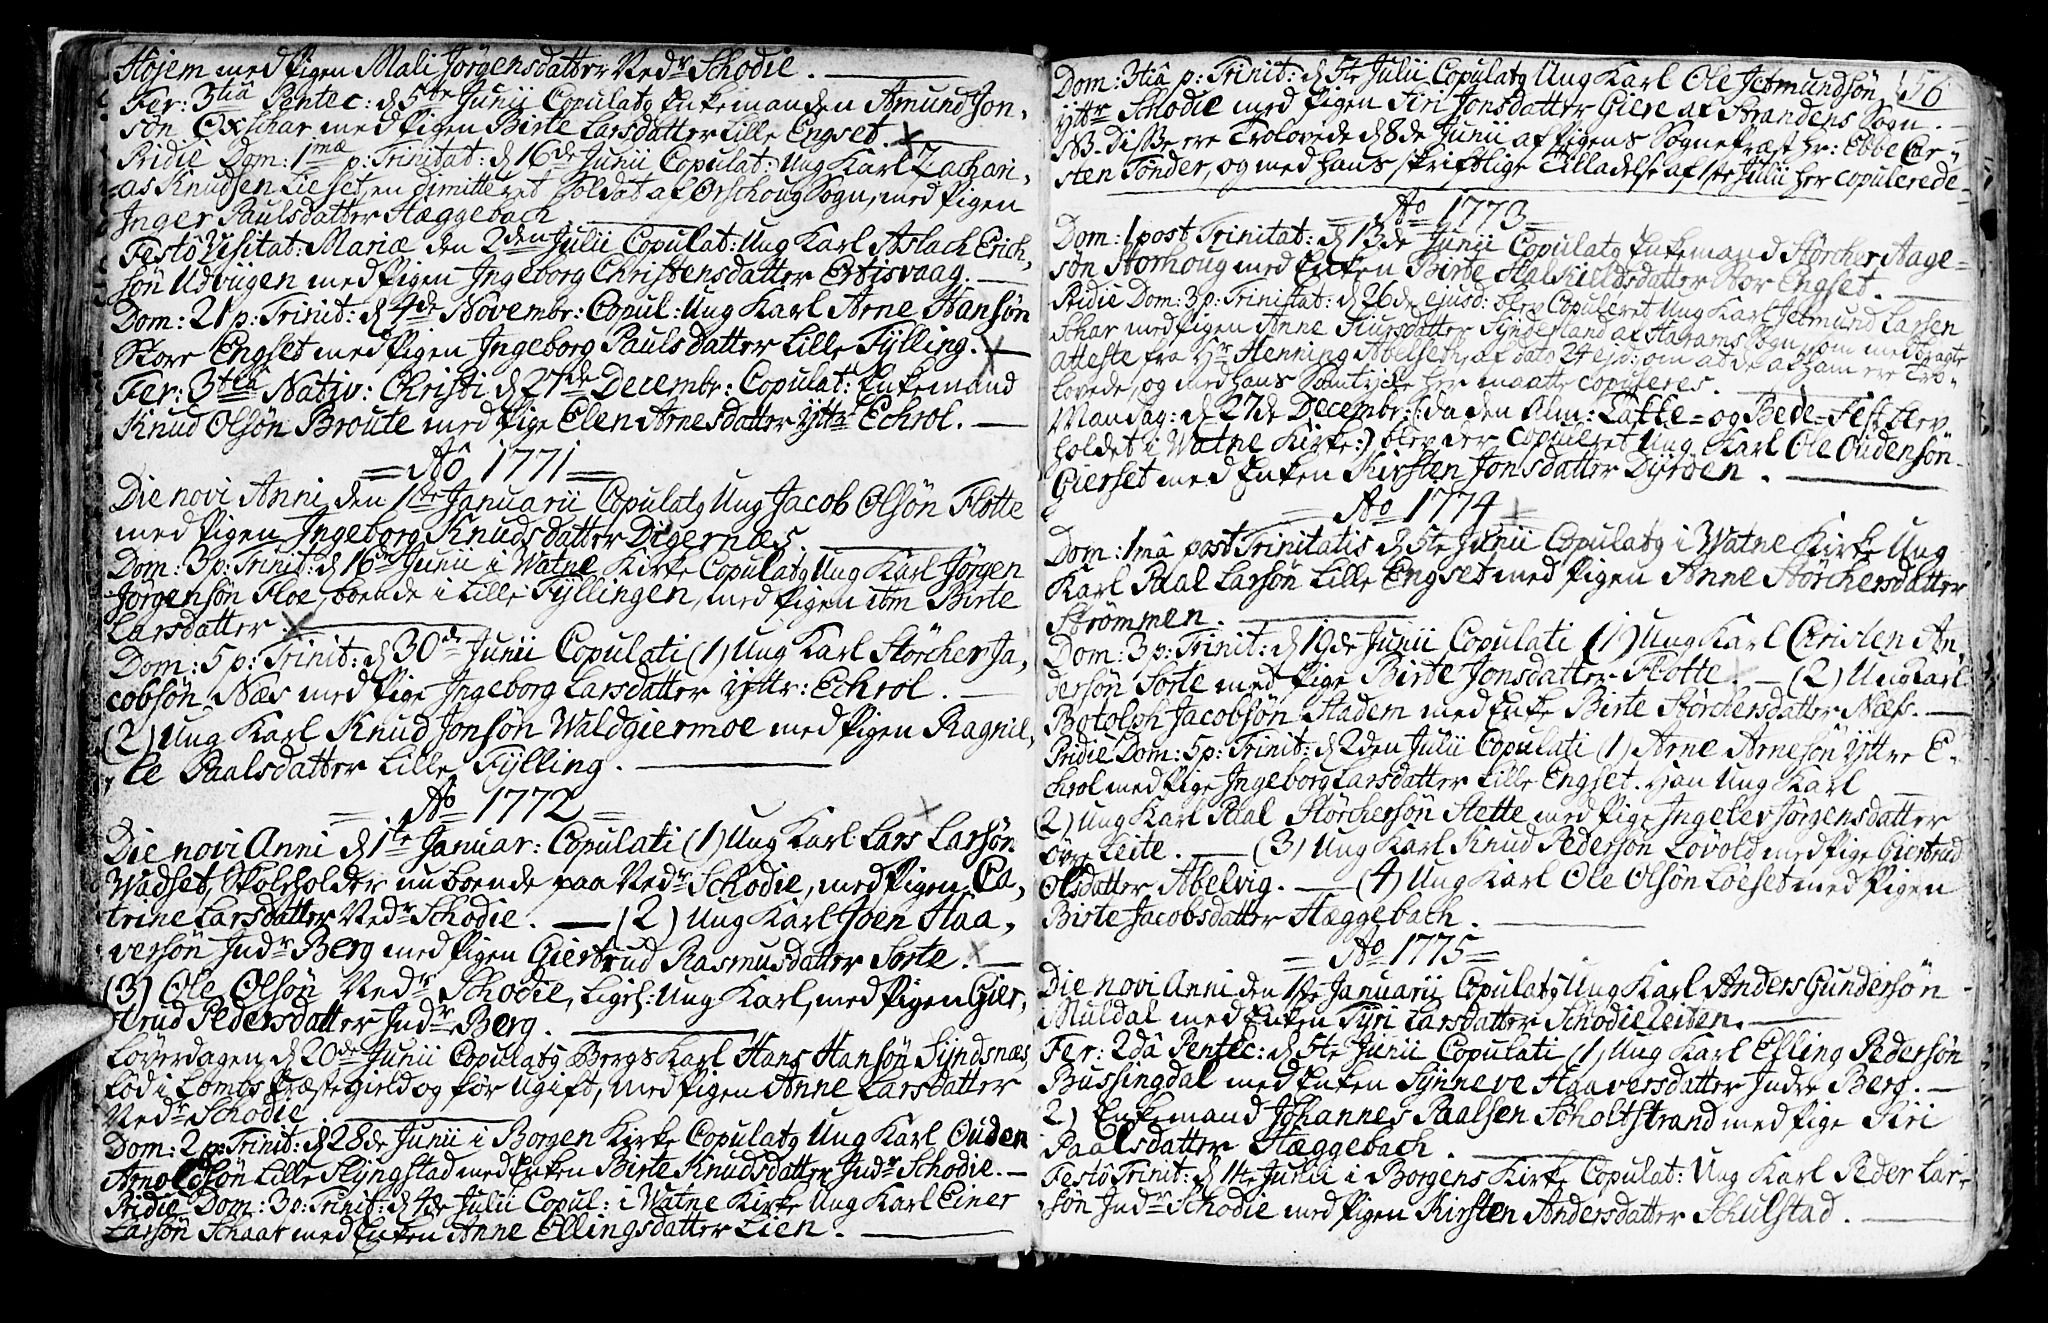 Højem med Pigen Mali Jörgensdatter Nedr Schodie.
Fer: 3tiâ Pentec: d 5te Junii Copulatq Enkemanden Amund Jon,
sön Oxschar med Pigen Birte Larsdatter Lille Engset.
Pridie Dom: 1mæ p: Trinitat: d 16de Junii Copulat: Ung Karl Zachari,
as Knudsen Lieset, en dimitteret Soldat af Ørschoug Sogn, med Pigen
Inger Paulsdatter Hæggebach.
Festo Visitat: Mariæ den 2den Julii Copulat: Ung Karl Aslach Erich,
sön Udvügen med Pigen Ingeborg Christensdatter Ertisvaag.
Dom: 21 p: Trinit: d 4de Novembr: Copul: Ung Karl Arne Hansön
Store Engset med Pigen Ingeborg Paulsdatter Lille Fylling.
Fer: 3tiâ Nativ: Christi d 27de Decembr: Copulat: Enkemand
Knud Olsön Broute med Pige Elen Arnesdatter Yttr Echrol.
Aô 1771
Die novi Anni den 1ste Januarii Copulatq Ung Jacob Olsön Flotte
med Pigen Ingeborg Knudsdatter Digernæs
Dom: 3 p: Trinit: d 16de Junii i Watne Kirke Copulatq Ung Karl Jörgen
Jörgensön Floe, boende i Lille Fyllingen, med Pigen ibm Birte
Larsdatter.
Dom: 5 p: Trinit: d 30de Junii Copulati (1) Ung Karl Störcher Ja,
cobsön Næs med Pige Ingeborg Larsdatter Yttr: Echrol.
(2) Ung Karl Knud Jonsön Waldgiermoe med Pigen Ragnil,
le Paalsdatter Lille Fylling.
Aô 1772
Die novi Anni d 1te Januar: Copulati (1) Ung Karl Lars Larsön
Wadset, Skoleholder nu boende paa Nedr Schodie, med Pigen Ca,
trine Larsdatter Nedr Schodie. (2) Ung Karl Joen Haa,
versön Indr Berg med Pigen Giertrud Rasmusdatter Sorte.
(3) Ole Olsön Nedr Schodie, ligel: Ung Karl, med Pigen Gier,
trud Pedersdatter Indr Berg.
Løverdagen d 20de Junii Copulatq Bergs Karl Hans Hansön Syndsnæs,
fød i Lombs Præstegield og før ugift, med Pigen Anne Larsdatter
Nedr Schodie
Dom: 2 p: Trinit: d 28de Junii i Borgen Kirke Copulatq Ung Karl Ouden
Arnoldsön Lille Slyngstad med Enken Birte Knudsdatter Indr Schodie.
Pridie Dom: 3 p: Trinit: d 4de Julii Copul: i Watne Kirke Ung Karl Einer
Larsön Schaar med Enken Anne Ellingsdatter Lien.
56
Dom: 3tiâ p: Trinit: d 5te Julii Copulatq Ung Karl Ole Jetmundsön
Yttr Schodie med Pigen Siri Jonsdatter Giere af Strandens Sogn.
NB. Disse ere Trolovede d 8de Junii af Pigens Sognepræst Hr: Ebbe Car,
sten Tönder, og med hans skriftlige Tilladelse af 1ste Julii her copulerede
Aô 1773
Dom: 1 post Trinitat: d 13de Junii Copulatq Enkemand Störcher Aage
sön Storhoug med Enken Birte Kieldsdatter Stor Engset.
Pridie Dom: 3 p: Trinitat: d 26de ejusd: blev Copuleret Ung Karl Jetmund Larsen
Schar med Pigen Anne Siursdatter Synderland af Harams Sogn, som medbragte
Atteste fra Hr Henning Abelseth, af dato 24 ejsd: om at de af ham ere Tro
lovede, og med hans Samtycke her maatte copuleres.
Mandag: d 27de Decembr: (: da den Alm: Takke- og Bede-Fest blev
holdet i Watne Kirke:) blev der copuleret Ung Karl Ole Oudensön
Gierset med Enken Kirsten Jonsdatter Dyrøen.
Aô 1774
Dom: 1mâ post Trinitatis d 5te Junii Copulatq i Watne Kirke Ung
Karl Paal Larsön Lille Engset med Pigen Anne Störchersdatter
Strømmen.
Dom: 3 p: Trinit: d 19de Junii Copulati (1) Ung Karl Christen An,
dersön Sorte med Pige Birte Jonsdatter Flotte. (2) Ung Karl
Botolph Jacobsön Hadem med Enke Birte Störchersdatter Næss.
Pridie Dom: 5 p: Trinit: d 2den Julii Copulati (1) Arne Arnesön Yttre E
chrol med Pige Ingeborg Larsdatter Lille Engset. Han Ung Karl
(2) Ung Karl Paal Störchersön Stette med Pige Ingelev Jörgensdatter
Øvr Leite. (3) Ung Karl Knud Pedersön Lövold med Pige Giertrud
Olsdatter Abelvig. (4) Ung Karl Ole Olsön Löeset med Pigen
Birte Jacobsdatter Hæggebach.
Aô 1775
Die novi Anni den 1ste Januarii Copulatq Ung Karl Anders Gundersön
Muldal med Enken Tyri Larsdatter Schodieleiten.
Fer: 2dâ Pentec: d 5te Junii Copulati (1) Ung Karl Elling Pedersön
Bussingdal med Enken Synneve Haaversdatter Indre Berg.
2) Enkemand Johannes Paalsen Scholtstrand med Pige Siri
Paalsdatter Hæggebach.
Festo Trinit: d 11te Junii i Borgens Kirke Copulat: Ung Karl Peder Lar
sön Indr Schodie med Pigen Kirsten Andersdatter Schulstad.